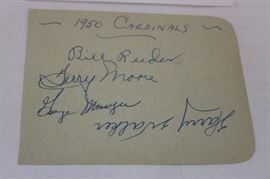 ~ 1950 CARDINALS ~
Bill Reeder
Terry Moore
George Munger
Harry Walker